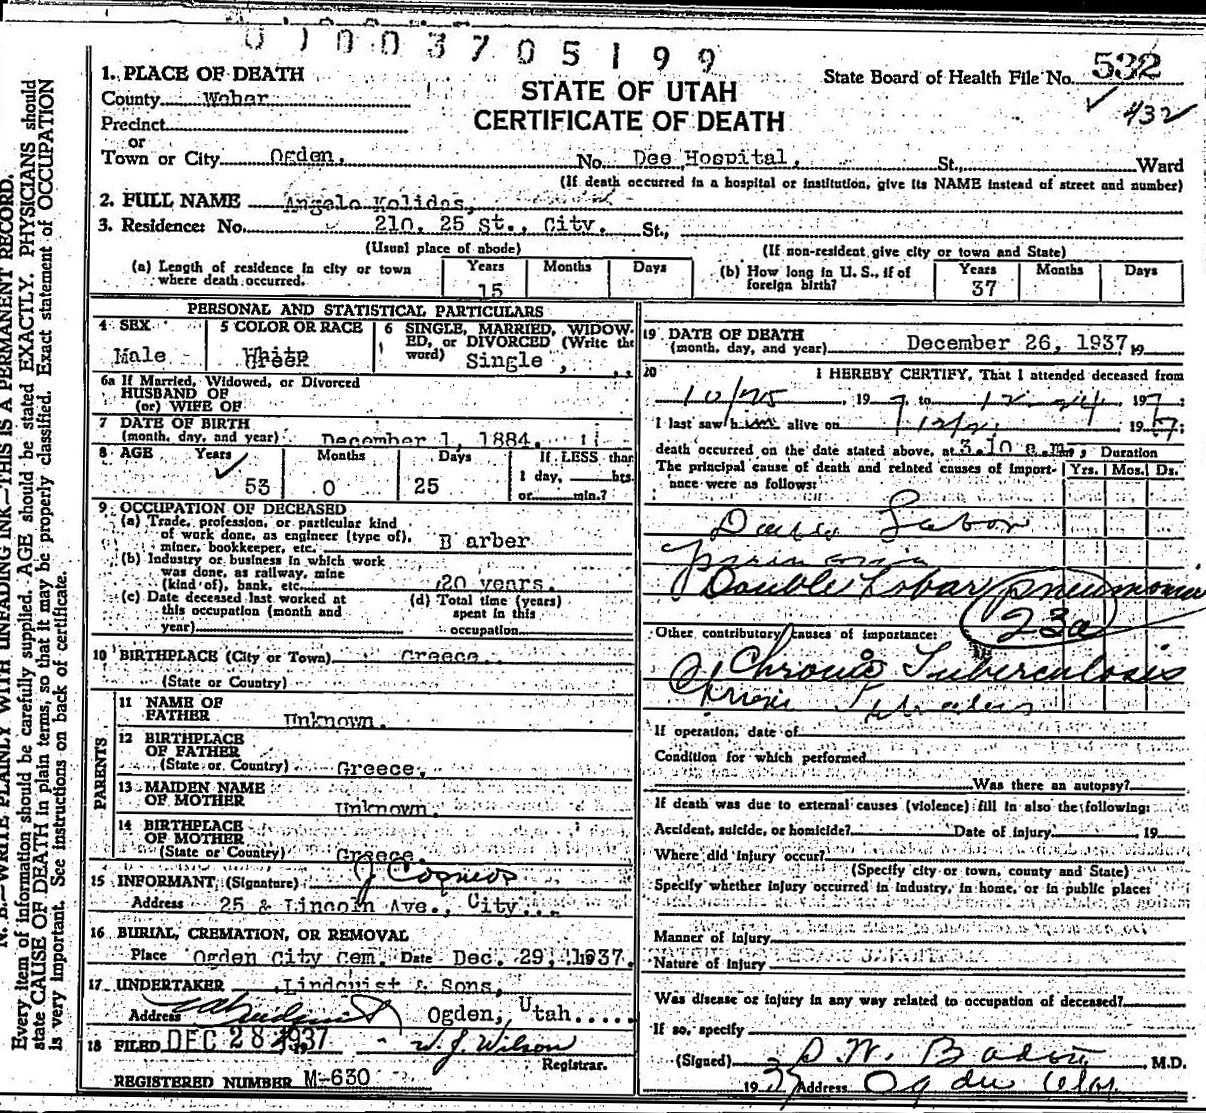 01003705199
State Board of Health File No. 532
432
1. PLACE OF DEATH
STATE OF UTAH
CERTIFICATE OF DEATH
County Weber
Precinct
or
Town or City Ogden, No. Dee Hospital, St., Ward
(If death occurred in a hospital or institution, give its NAME instead of street and number)
2. FULL NAME Angelo Kolidas,
3. Residence: No. 210, 25 St., City. St.,
(Usual place of abode) (If non-resident give city or town and State)
(a) Length of residence in city or town where death occurred. Years 15 Months Days
(b) How long in U. S., if of foreign birth? Years 37 Months Days
PERSONAL AND STATISTICAL PARTICULARS
4 SEX Male
5 COLOR OR RACE White Greek
6 SINGLE, MARRIED, WIDOWED, or DIVORCED (Write the word) Single
6a If Married, Widowed, or Divorced
HUSBAND OF
(or) WIFE OF
7 DATE OF BIRTH
(month, day, and year) December 1, 1884.
8 AGE Years 53 Months 0 Days 25
If LESS than
1 day, hrs.
or min.?
9. OCCUPATION OF DECEASED
(a) Trade, profession, or particular kind
of work done, as engineer (type of),
miner, bookkeeper, etc. B arber
(b) Industry or business in which work
was done, as railway, mine
(kind of), bank, etc. 20 years.
(c) Date deceased last worked at
this occupation (month and
year)
(d) Total time (years)
spent in this
occupation
10 BIRTHPLACE (City or Town) Greece.
(State or Country)
PARENTS
11 NAME OF
FATHER Unknown.
12 BIRTHPLACE
OF FATHER
(State or Country) Greece.
13 MAIDEN NAME
OF MOTHER Unknown.
14 BIRTHPLACE
OF MOTHER
(State or Country) Greece.
15 INFORMANT (Signature) J Cosmos
Address 25 & Lincoln Ave., City...
16 BURIAL, CREMATION, OR REMOVAL
Place Ogden City Cem. Date Dec. 29, 1937.
17 UNDERTAKER Lindquist & Sons,
Address Ogden, Utah.....
18 FILED DEC 28 1937, 19 W. J. Wilson
Registrar.
REGISTERED NUMBER M-630
19 DATE OF DEATH
(month, day, and year) December 26, 1937, 19
20 I HEREBY CERTIFY, That I attended deceased from
10/25, 1937 to 12-24, 1937;
I last saw him alive on 12/24 1937;
death occurred on the date stated above, at 3.10 a.m. Duration
The principal cause of death and related causes of importance were as follows: Yrs. Mos. Ds.
Double Lobar
Pneumonia
Double Lobar Pneumonia
23a
Other contributory causes of importance:
Chronic Tuberculosis
Chronic
If operation, date of
Condition for which performed
Was there an autopsy?
If death was due to external causes (violence) fill in also the following:
Accident, suicide, or homicide? Date of injury , 19
Where did injury occur?
(Specify city or town, county and State)
Specify whether injury occurred in industry, in home, or in public place:
Manner of Injury
Nature of Injury
Was disease or injury in any way related to occupation of deceased?
If so, specify
(Signed) M.D.
19 37 Address Ogden Utah
N. B.—WRITE PLAINLY WITH UNFADING INK—THIS IS A PERMANENT RECORD.
Every item of information should be carefully supplied. AGE should be stated EXACTLY. PHYSICIANS should
state CAUSE OF DEATH in plain terms, so that it may be properly classified. Exact statement of OCCUPATION
is very important. See instructions on back of certificate.